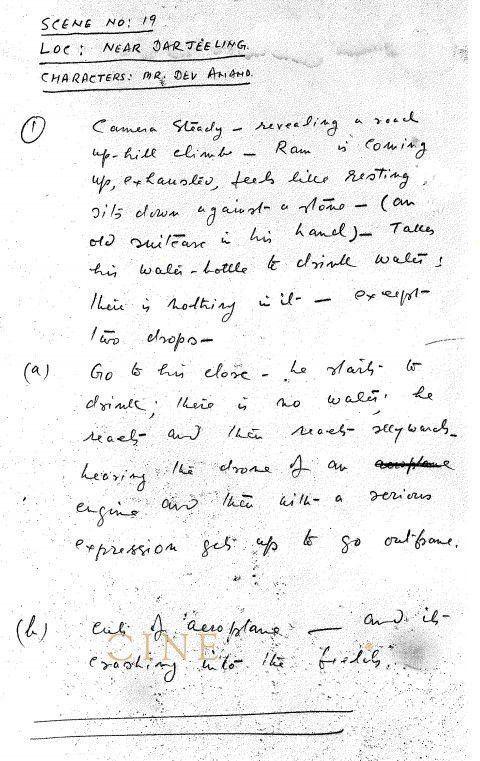 SCENE NO: 19
LOC: NEAR DARJEELING.
CHARACTERS: MR. DEV ANAND.
(1) Camera Steady – revealing a road
up-hill climb – Ram is coming
up, exhausted, feels like resting,
sits down against a stone – (an
old suitcase in his hand) – Takes
his water-bottle to drink water;
there is nothing in it – except
two drops –
(a) Go to his close – he starts to
drink; there is no water; he
reacts and then reacts skywards –
hearing the drone of an aeroplane
engine and then with a serious
expression gets up to go outframe.
(b) Cut of aeroplane — and its
crashing into the fields.
CINE